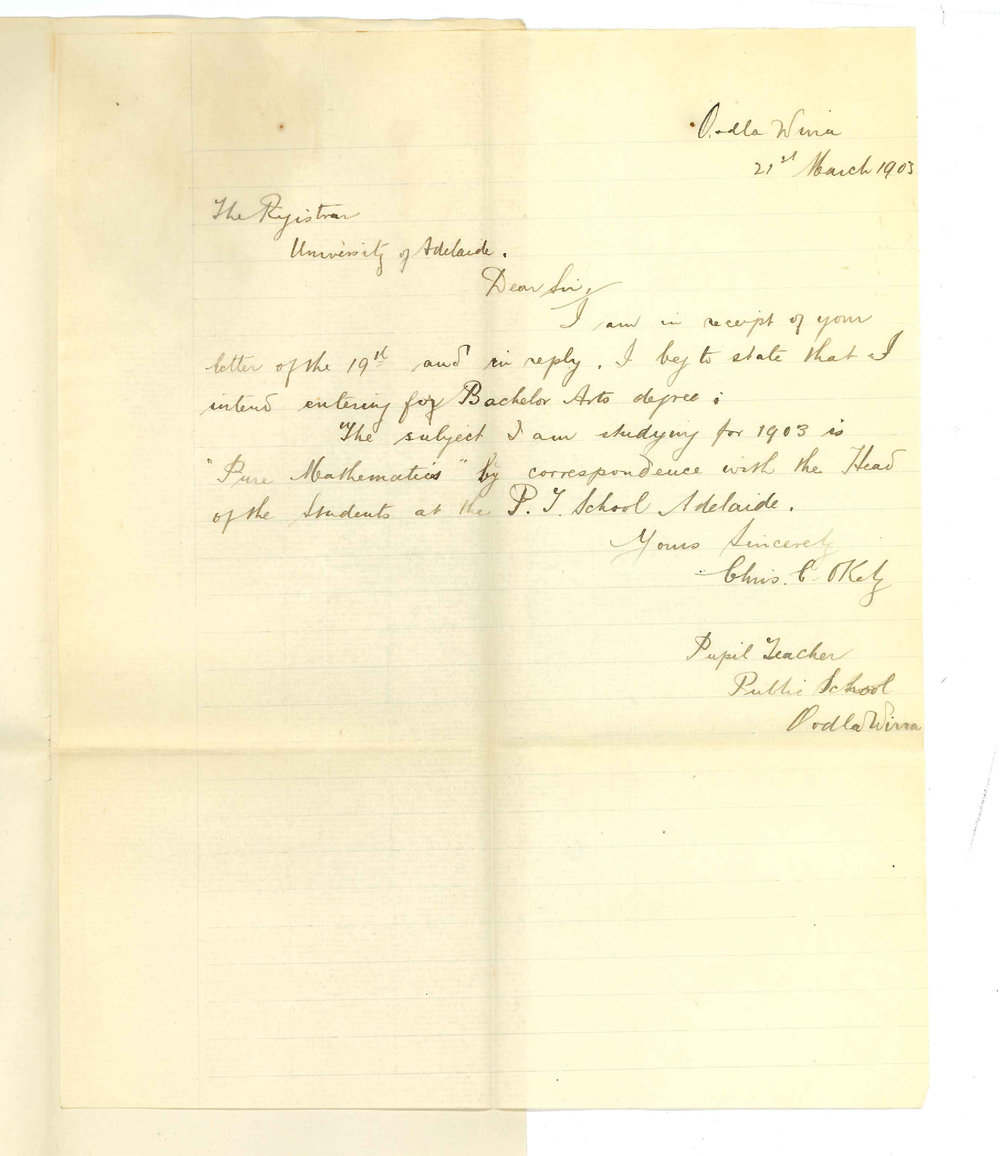 Oodla Wirra
21st March 1903
The Registrar
University of Adelaide.
Dear Sir,
I am in receipt of your
letter of the 19th and in reply, I beg to state that I
intend entering for Bachelor Arts degree.
The subject I am studying for 1903 is
"Pure Mathematics" by correspondence with the Head
of the Students at the P. T. School Adelaide.
Yours Sincerely
Chris. C.
Pupil Teacher
Public School
Oodla Wirra